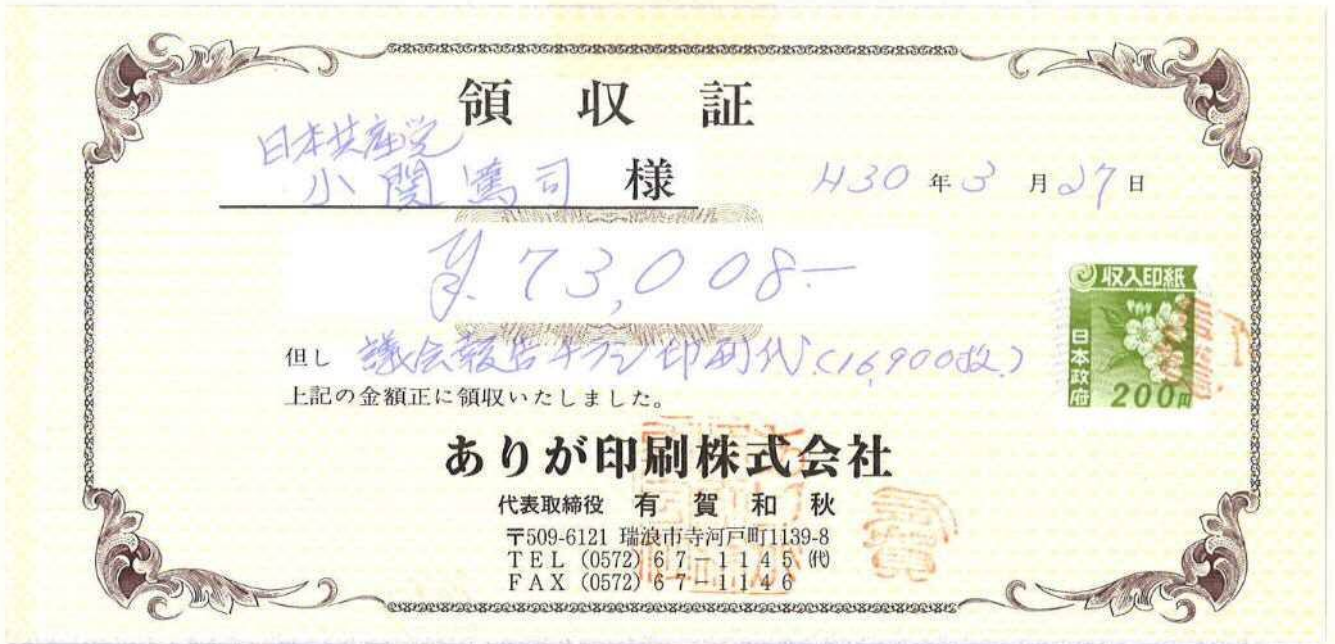 領収証
日本共産党
小関篤司 様
H30年3月27日
¥73,008-
収入印紙
日本政府
200円
但し 議会報告チラシ印刷代(16,900枚)
上記の金額正に領収いたしました。
ありが印刷株式会社
代表取締役 有賀和秋
〒509-6121 瑞浪市寺河戸町1139-8
TEL (0572) 67-1145 ㈹
FAX (0572) 67-1146